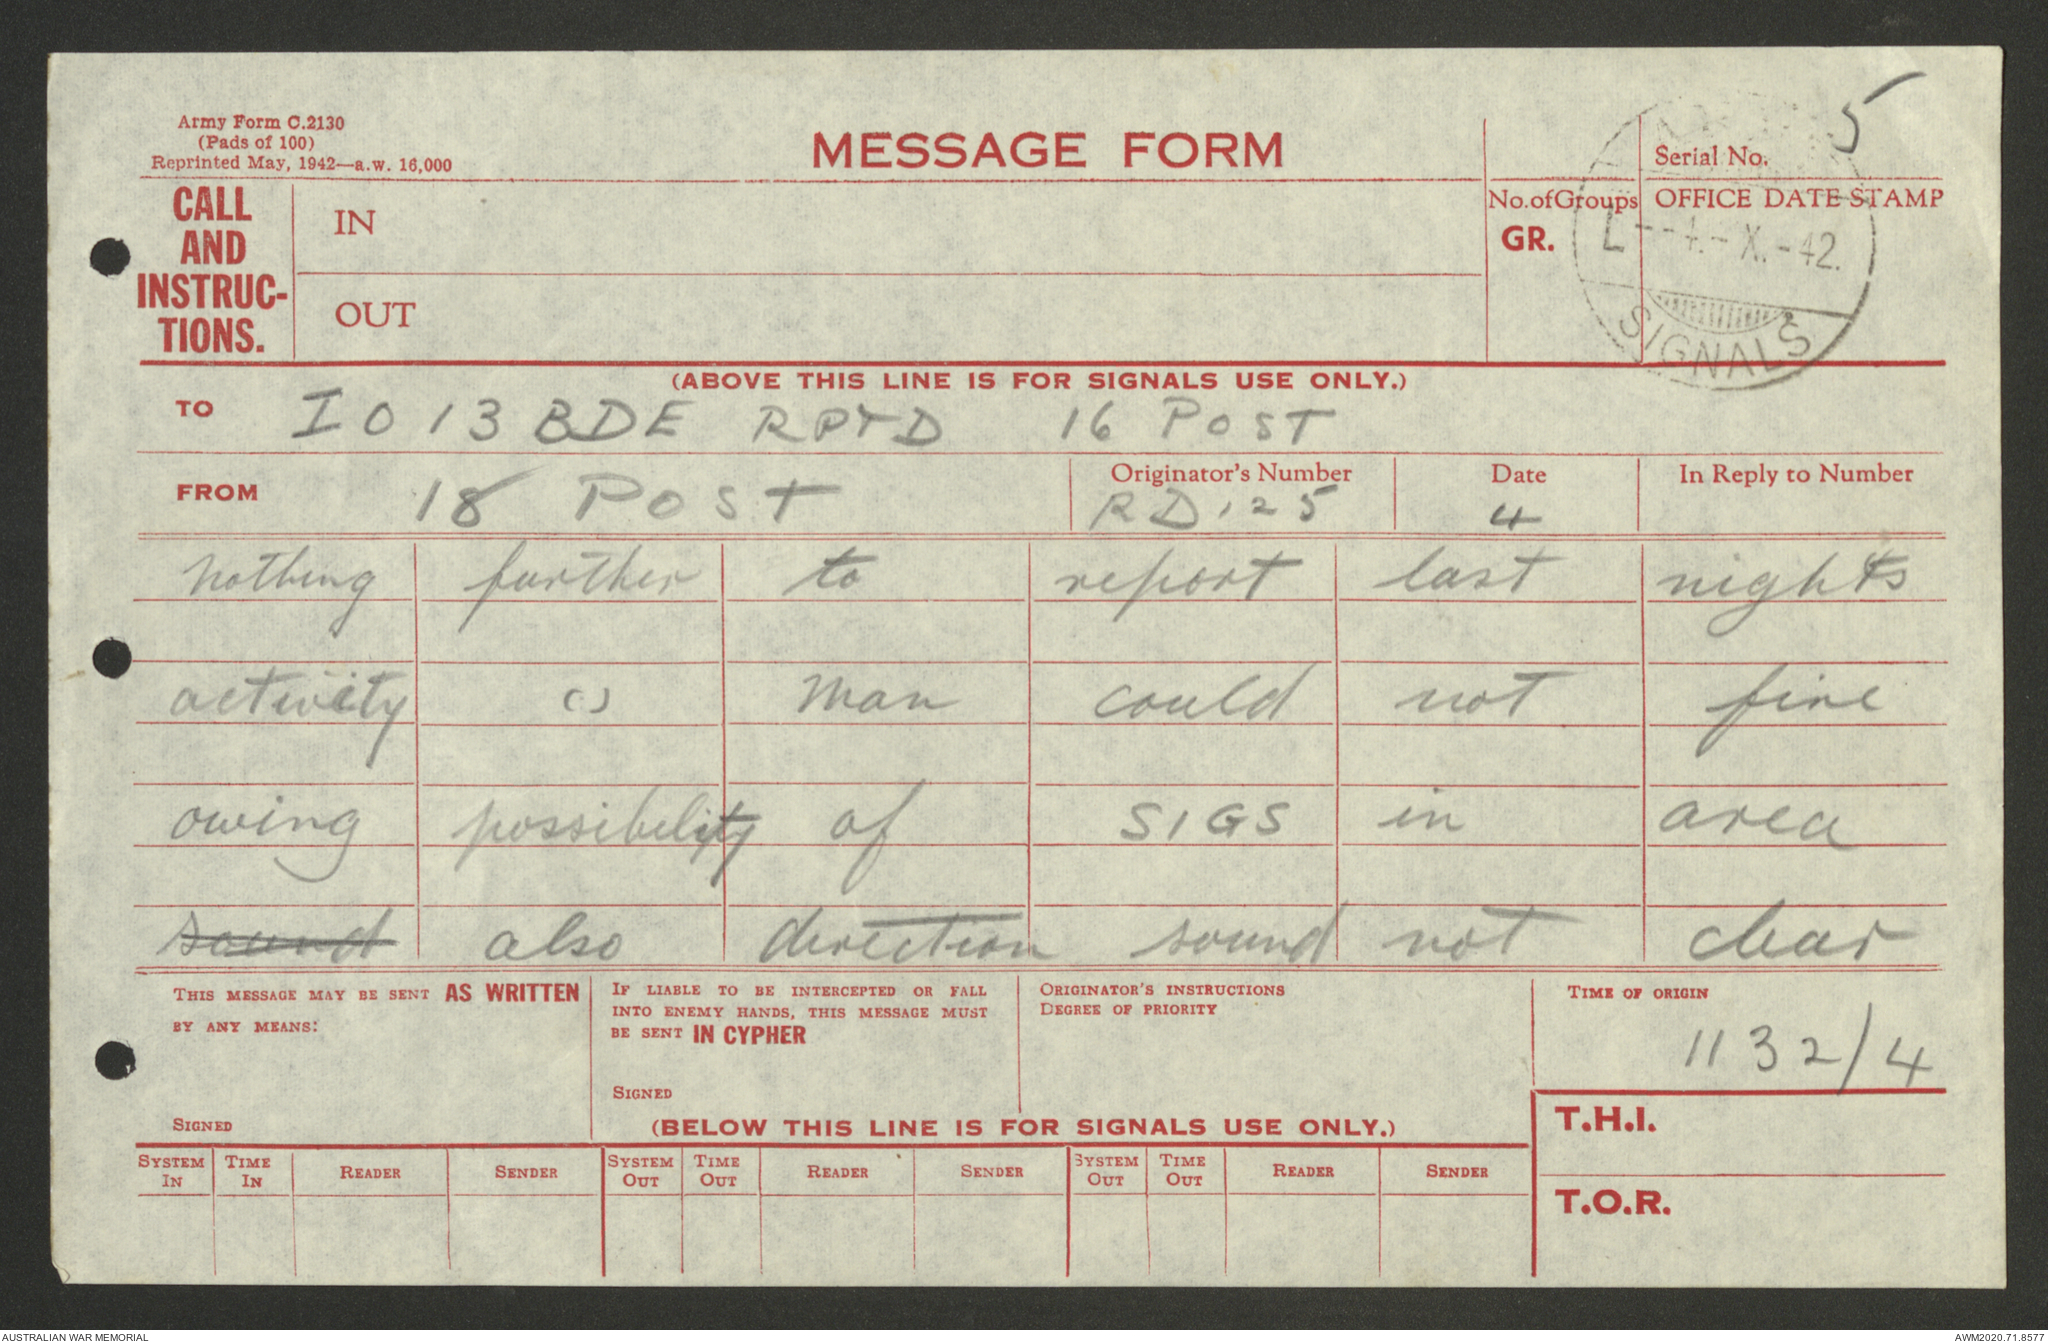 Army Form C.2130
(Pads of 100)
Reprinted May, 1942—a.w. 16,000
MESSAGE FORM
5
Serial No.
CALL AND INSTRUC-TIONS.
IN
OUT
No. of Groups
GR.
OFFICE DATE STAMP
L--4.-X.-42.
SIGNALS
(ABOVE THIS LINE IS FOR SIGNALS USE ONLY.)
TO IO 13 BDE RPTD 16 POST
FROM 18 POST
Originator's Number RD125
Date 4
In Reply to Number
nothing further to report last nights
activity (.) man could not fire
owing possibility of SIGS in area
sound also direction sound not clear
THIS MESSAGE MAY BE SENT AS WRITTEN
BY ANY MEANS:
SIGNED
IF LIABLE TO BE INTERCEPTED OR FALL
INTO ENEMY HANDS, THIS MESSAGE MUST
BE SENT IN CYPHER
SIGNED
ORIGINATOR'S INSTRUCTIONS
DEGREE OF PRIORITY
TIME OF ORIGIN
1132/4
(BELOW THIS LINE IS FOR SIGNALS USE ONLY.)
T.H.I.
T.O.R.
SYSTEM IN TIME IN READER SENDER SYSTEM OUT TIME OUT READER SENDER SYSTEM OUT TIME OUT READER SENDER
AUSTRALIAN WAR MEMORIAL
AWM2020.71.8577